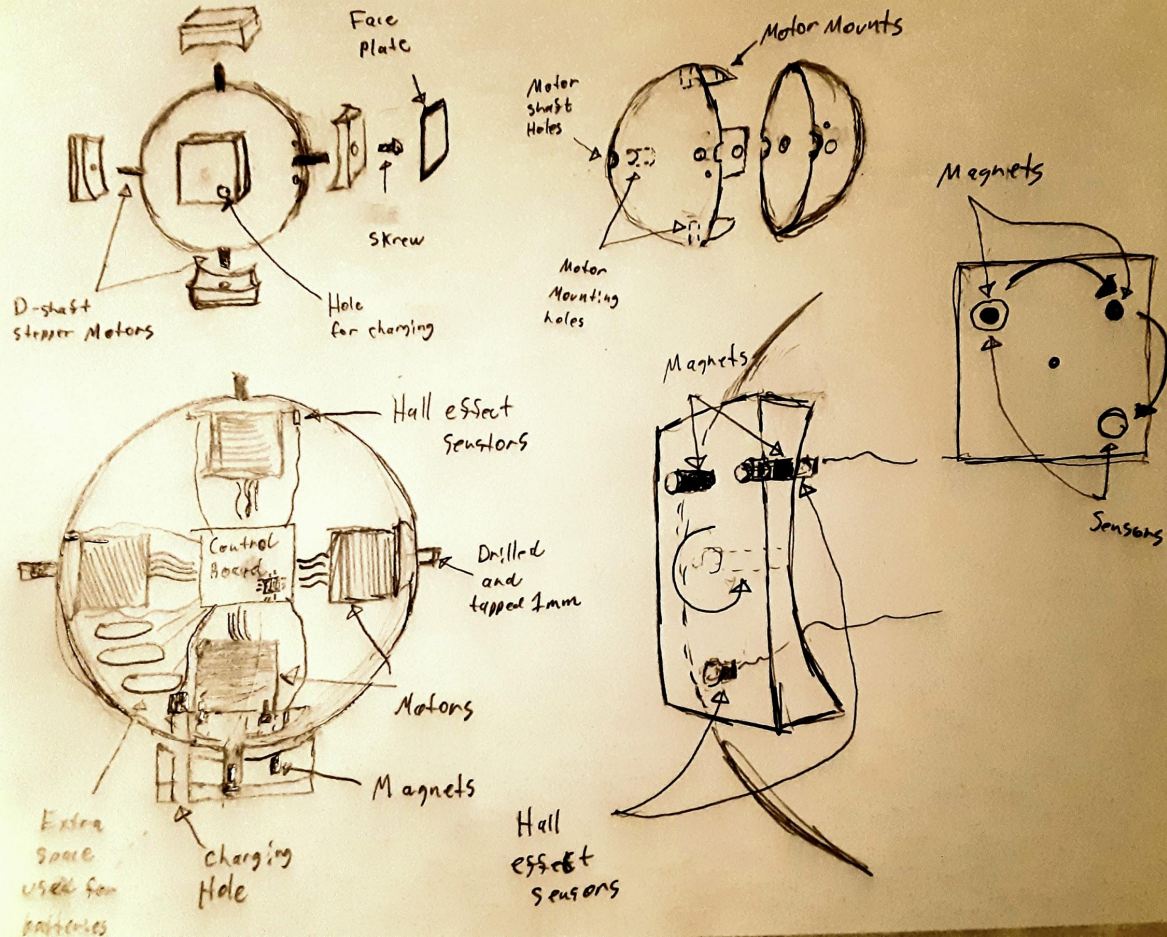 Face
Plate
Skrew
D-shaft
stepper Motors
Hole
for charging
Motor Mounts
Motor
shaft
Holes
Motor
Mounting
holes
Magnets
Sensors
Hall effect
Senstors
Control
Board
Drilled
and
tapped 1mm
Motors
Magnets
Charging
Hole
Extra
space
used for
batteries
Magnets
Hall
effekt
sensors